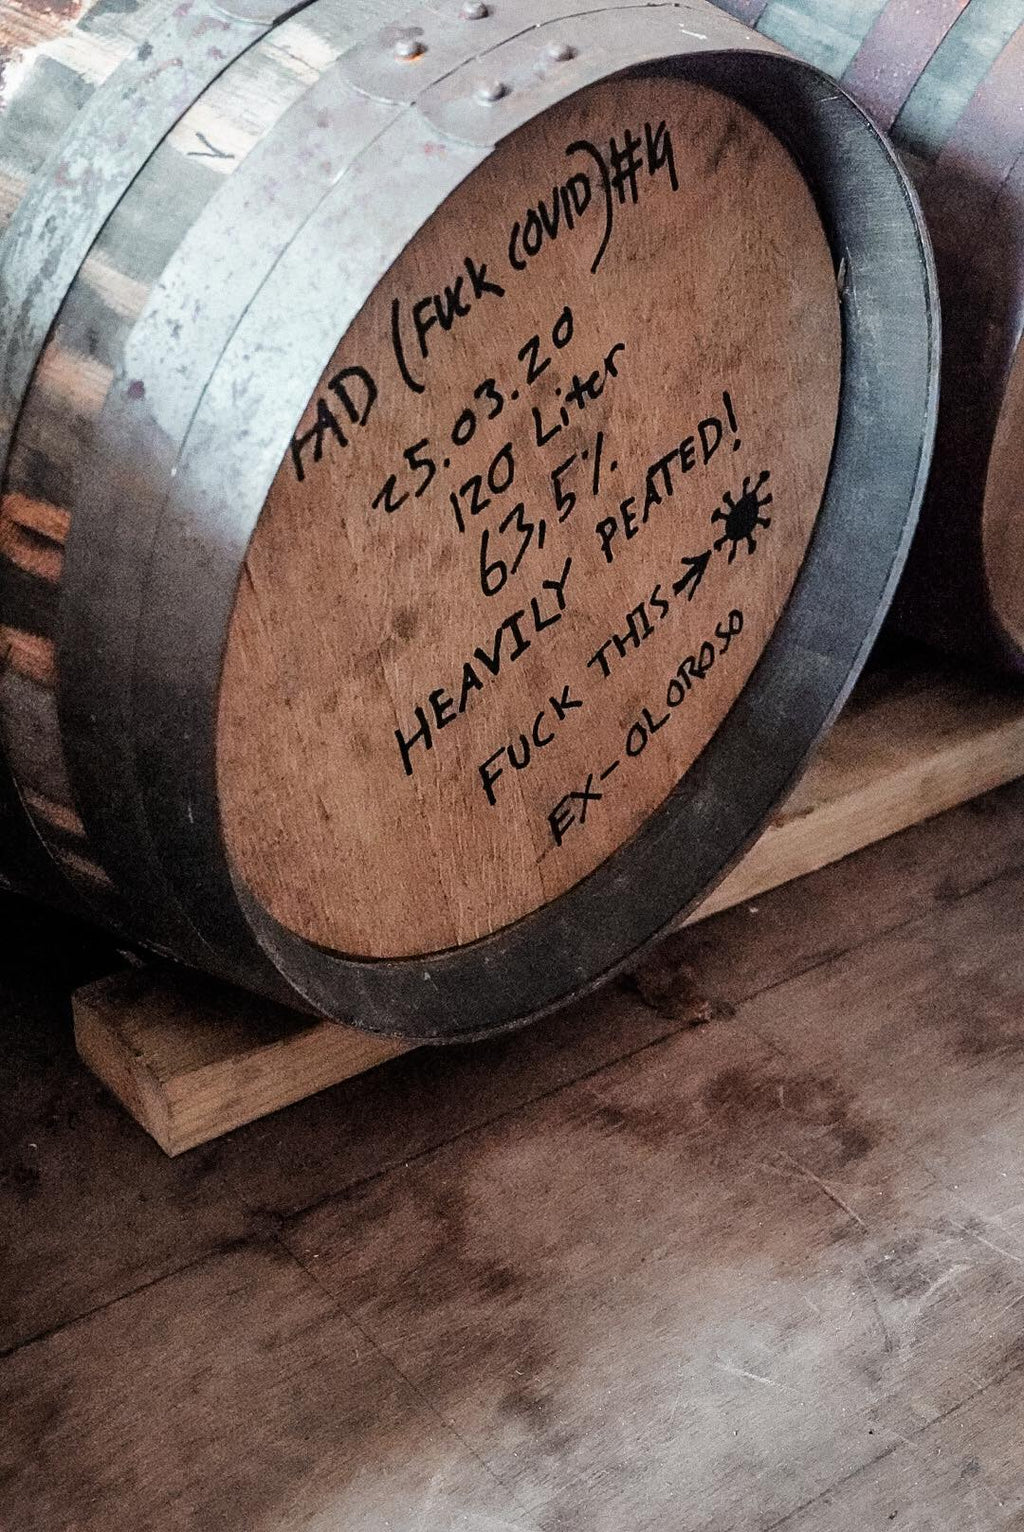 FAD (FUCK COVID) #4
25.03.20
120 Liter
63,5%
HEAVILY PEATED!
FUCK THIS →
EX-OLOROSO